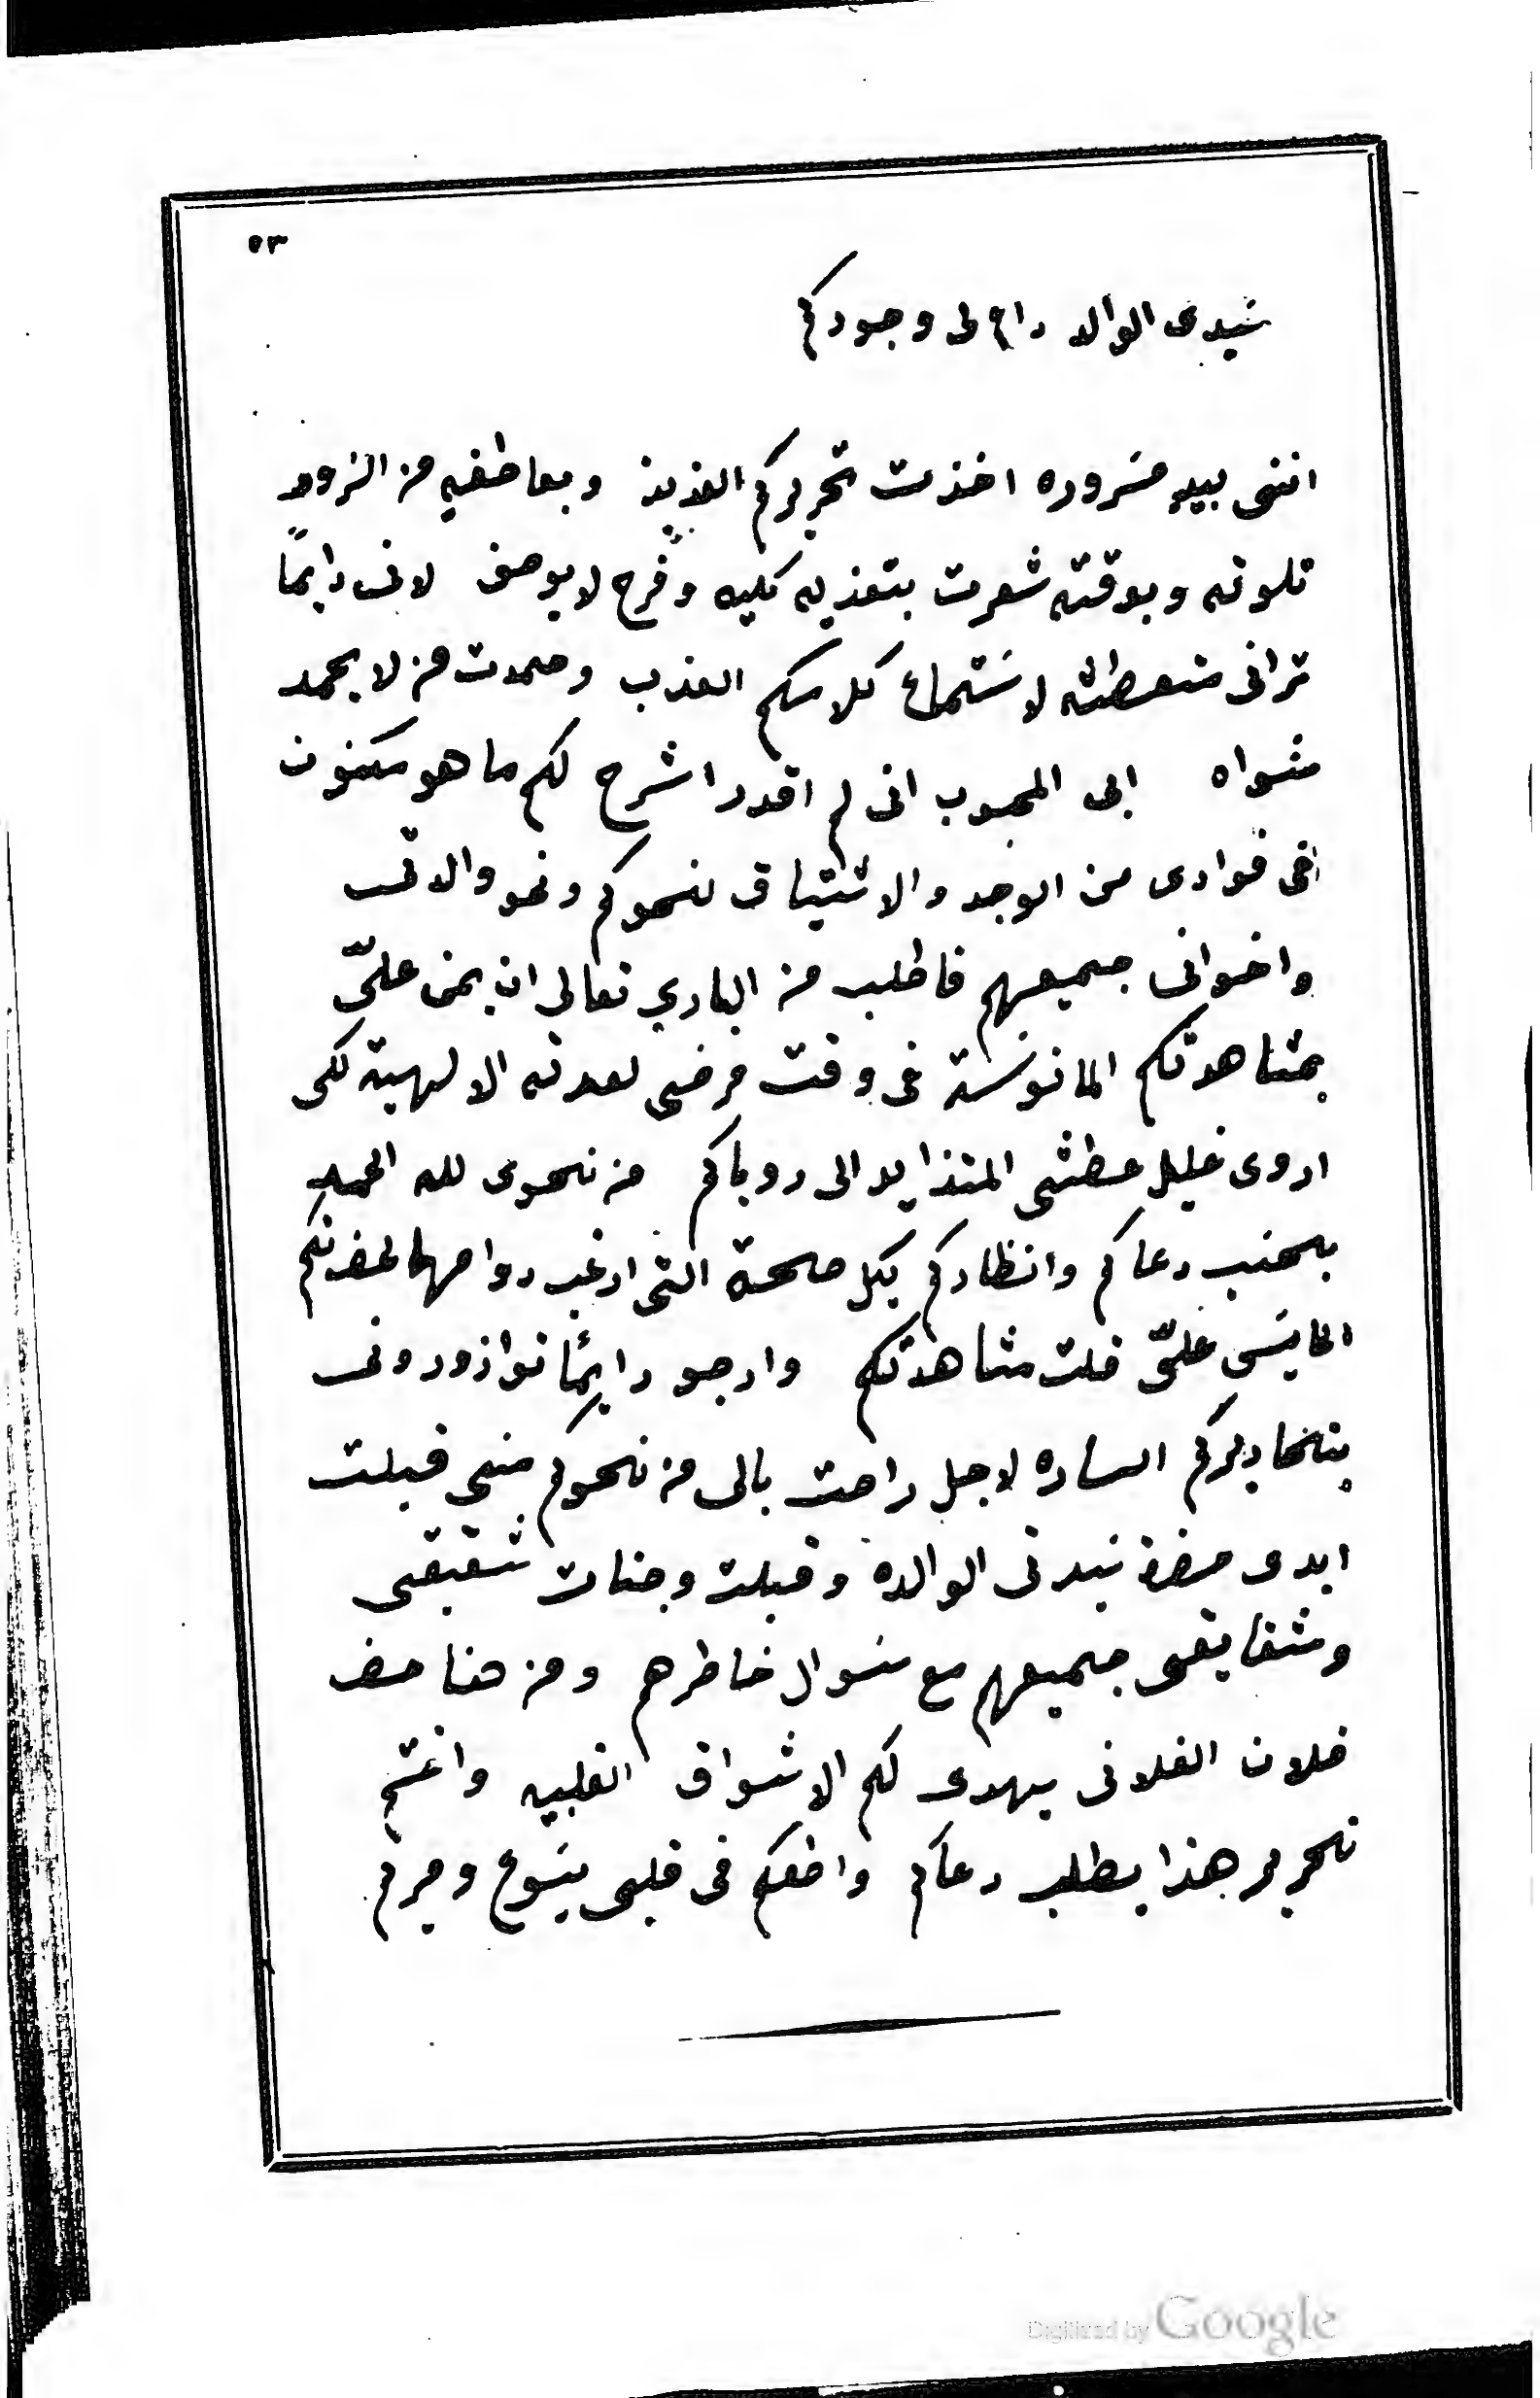 ٥٣
سيدى الوالد دام لى وجودكم
اننى بيدٍ مسروره اخذت تحريركم العذيذ وبعاطفيه من الروح
تلوته وبوقته شعرت بتعذيه كليه وفرح لا يوصف لانى دايمًا
ترانى متعطشه لاستماع كلامكم العذب وحمدت من لا يحمد
سواه ابى المحبوب انى لم اقدر اشرح لكم ما هو مكنون
فى فوادى من الوجد والاشتياق لنحوكم ونحو والدتى
واخوانى جميعهم فاطلب من البارى تعالى ان يمن علىّ
بمشاهدتكم المانوسة فى وقت مرضى لعدته الالهية لكى
اروى غليل عطشى المتذايد الى روياكم من نحوى لله الحمد
بحسب دعاكم وانظاركم بكل صحة التى ارغب دوامها لحضرتكم
انما يسى علىّ قلت مشاهدتكم وارجو دايمًا توازورونى
بتحاريركم الساره لاجل راحت بالى من نحوكم منى قبلت
ايدى حضرة سيدتى الوالدة وقبلت وجنات شقيقى
وشقايقى جميعهم مع سوال خاطرهم ومن هنا حضـ
فلان الفلانى يهدى لكم الاشواق القلبيه واختم
تحرير هذا بطلب دعاكم واضعكم فى قلبى يسوع ومريم
Digitized by Google